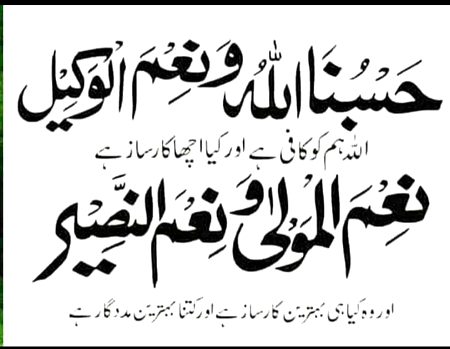 حَسْبُنَا اللهُ وَنِعْمَ الْوَكِيْل
اللہ ہم کو کافی ہے اور کیا اچھا کارساز ہے
نِعْمَ الْمَوْلٰی وَنِعْمَ النَّصِیْر
اور وہ کیا ہی بہترین کارساز ہے اور کتنا بہترین مددگار ہے